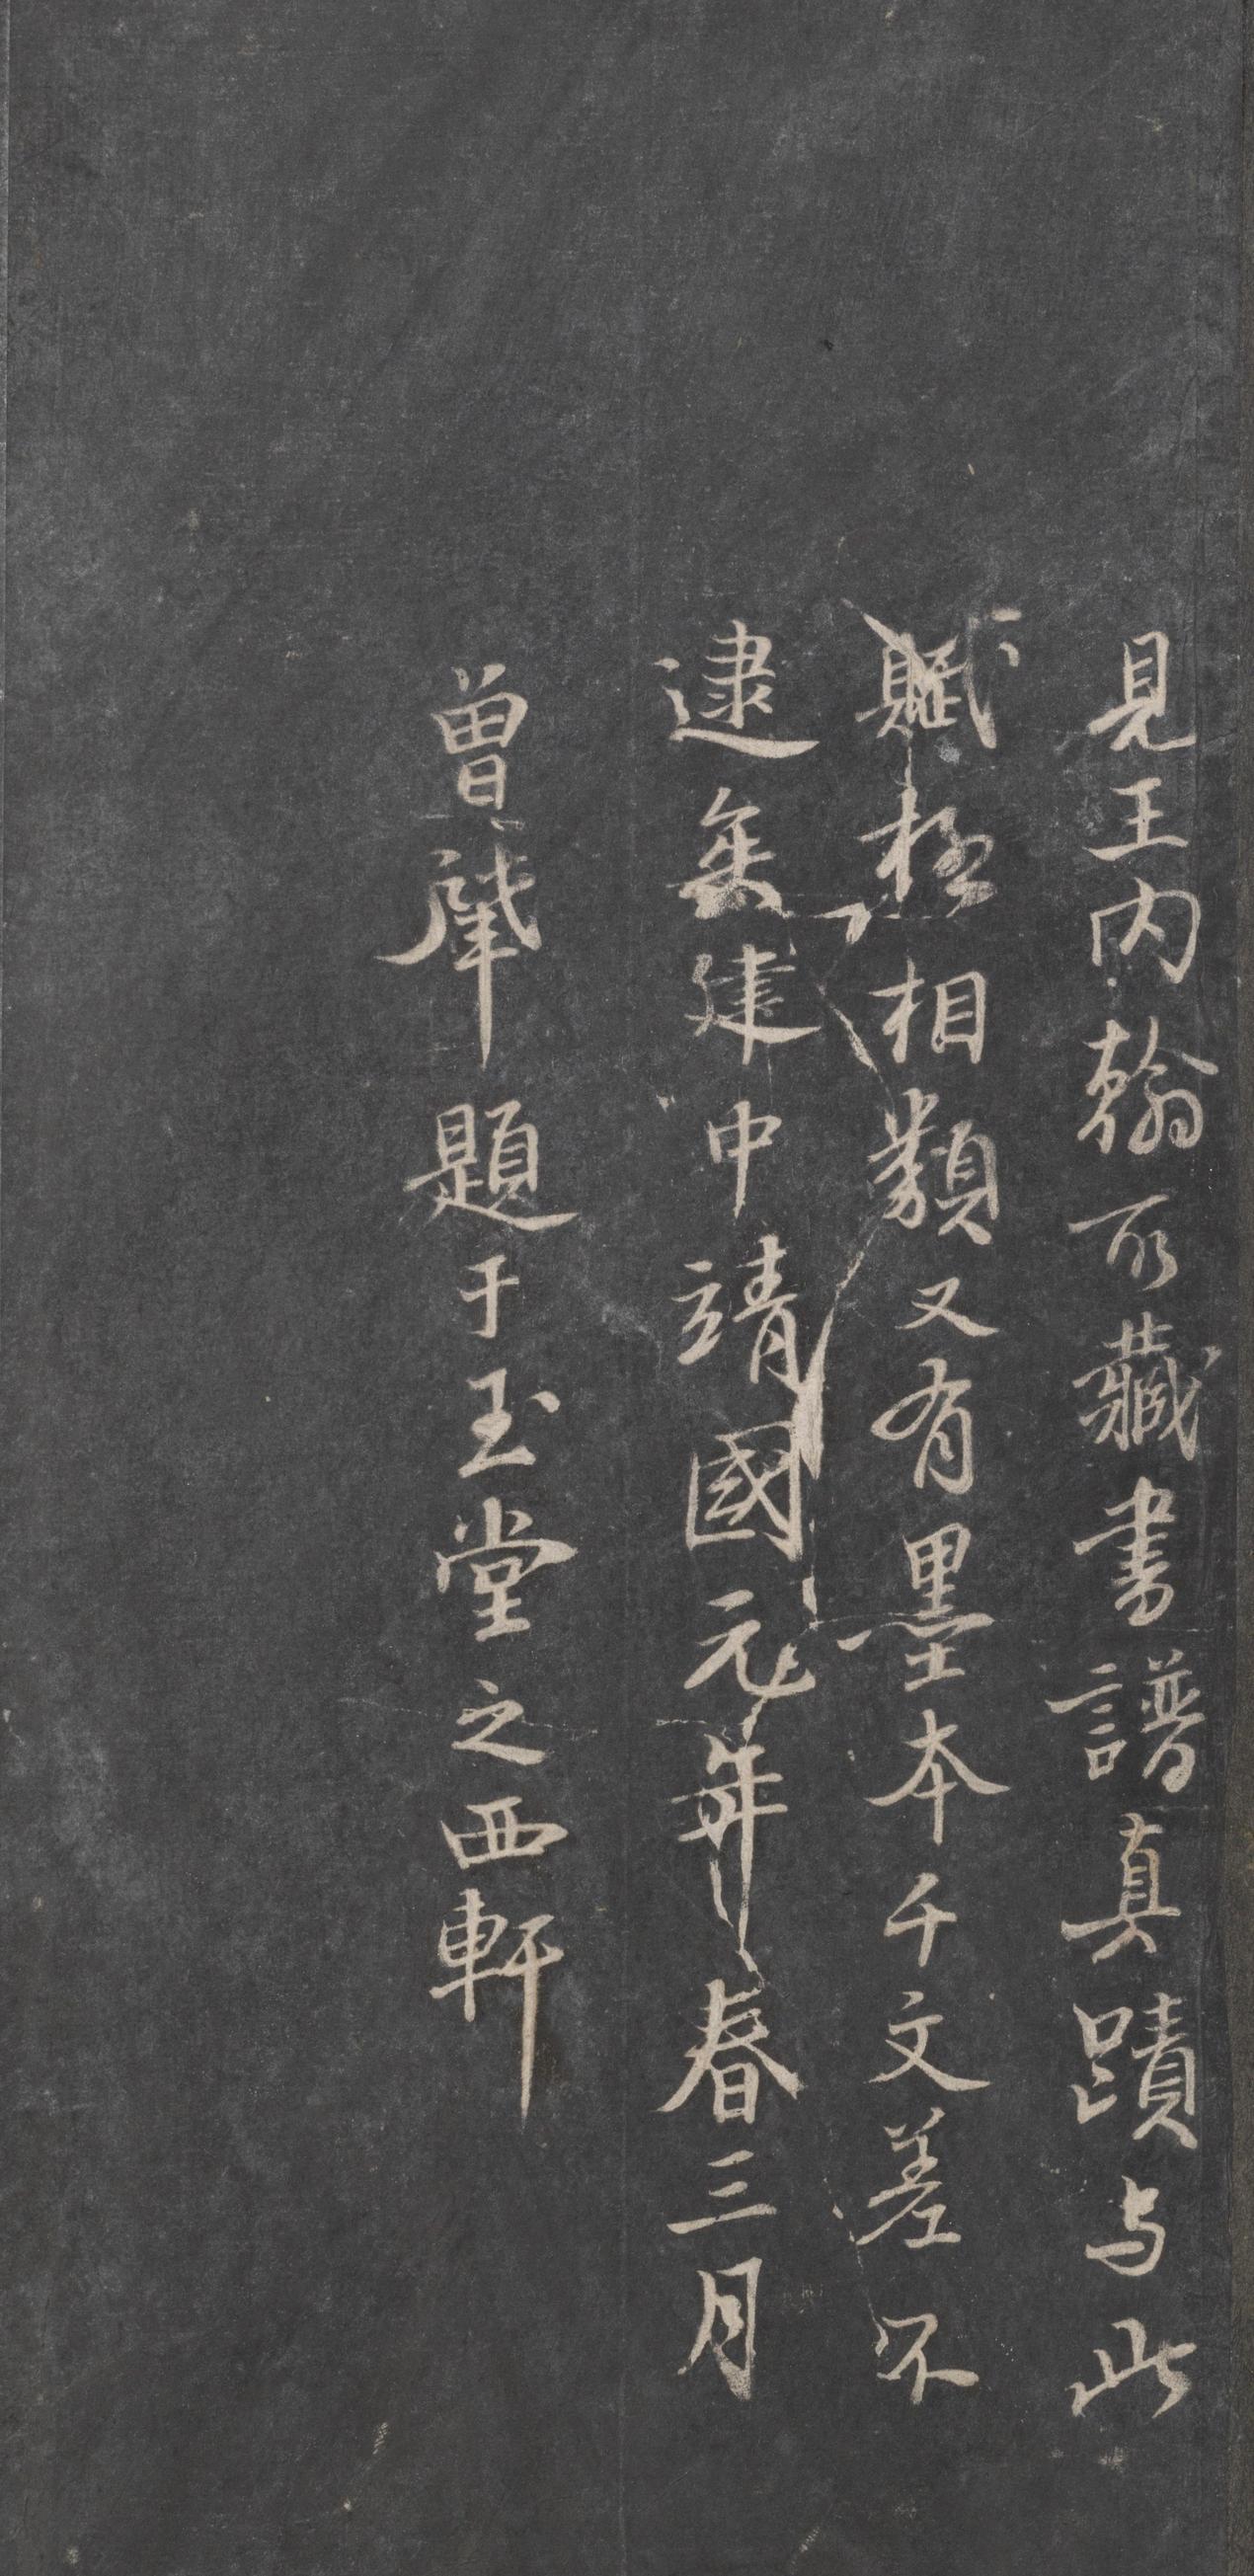 見王内翰所藏書譜真蹟与此
賦極相類又有墨本千文差不
逮矣建中靖國元年春三月
曾肈題于玉堂之西軒